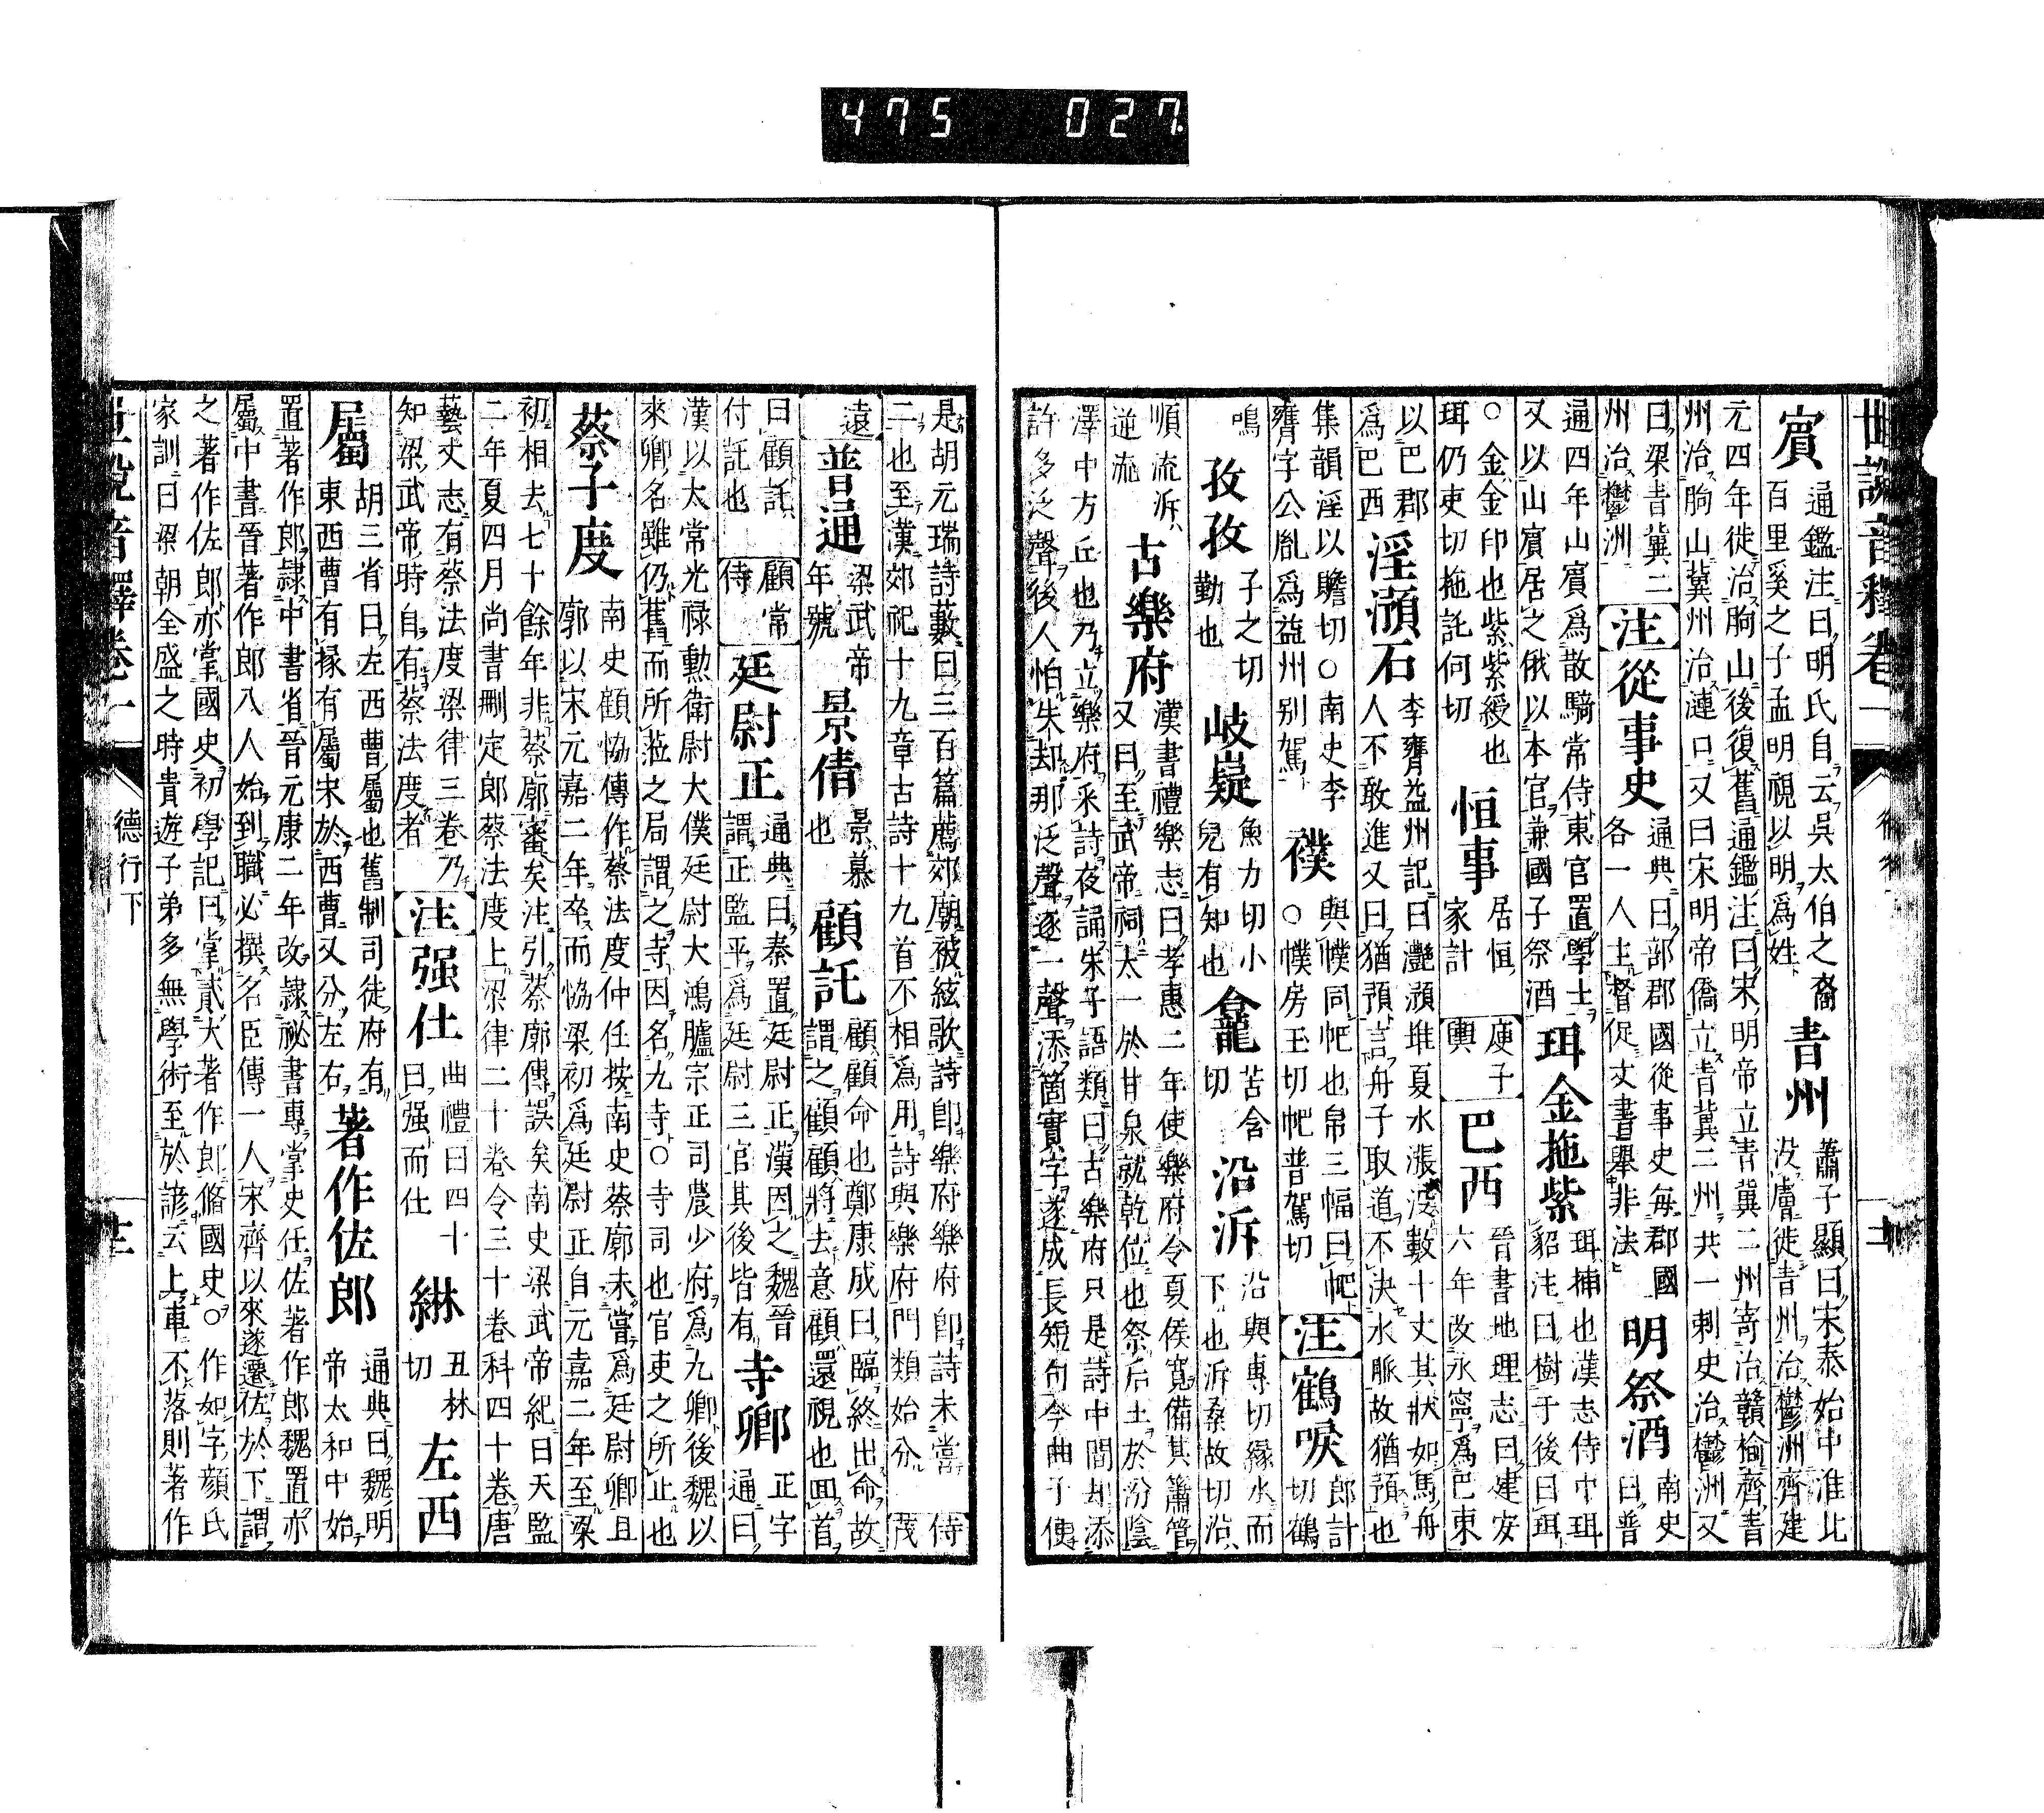 475 027
世説音釋卷一
賓 通鑑注曰明氏自云吳太伯之裔 百里奚之子孟明視以明爲姓 青州 蕭子顯曰宋泰始中淮北 沒虜徙青州治鬱洲齊建
元四年徙治朐山後復舊通鑑注曰宋明帝立青冀二州寄治贛榆齊青
州治朐山冀州治漣口又曰宋明帝僑立青冀二州共一刺史治鬱洲又
曰梁青冀二 州治鬱洲 注 從事史 通典曰部郡國從事史每郡國 各一人主督促文書舉非法 明祭酒 南史 曰普
通四年山賓爲散騎常侍東官置學士 又以山賓居之俄以本官兼國子祭酒 珥金拖紫 珥插也漢志侍中珥 貂注曰樹于後曰珥
○金金印也紫紫綬也 珥仍吏切拖託何切 恒事 居恒 家計 庾子輿 巴西 晉書地理志曰建安 六年改永寧爲巴東
以巴郡 爲巴西 淫澦石 李膺益州記曰灩澦堆夏水漲沒數十丈其狀如馬舟 人不敢進又曰猶預言舟子取道不決水脈故猶預也
集韻淫以贍切○南史李 膺字公胤爲益州别駕 襆 與幞同帊也帛三幅曰帊 ○幞房玉切帊普駕切 注 鶴唳 郎計 切鶴
鳴 孜孜 子之切 勤也 岐嶷 魚力切小 皃有知也 龕 苦含 切 沿泝 沿與專切緣水而 下也泝桑故切沿
順流泝 逆流 古樂府 漢書禮樂志曰孝惠二年使樂府令夏侯寬備其簫管 又曰至武帝祠太一於甘泉就乾位也祭后土於汾陰
澤中方丘也乃立樂府采詩夜誦朱子語類曰古樂府只是詩中間却添
許多泛聲後人怕失却那泛聲逐一聲添箇實字遂成長短句今曲子便
是胡元瑞詩藪曰三百篇薦郊廟被絃歌詩即樂府樂府即詩未嘗
二也至漢郊祀十九章古詩十九首不相爲用詩與樂府門類始分 侍茂
遠 普通 梁武帝 年號 景倩 景慕 也 顧託 顧顧命也鄭康成曰臨終出命故 謂之顧顧將去意顧還視也回首
曰顧託 付託也 顧常侍 廷尉正 通典曰秦置廷尉正漢因之魏晉 謂正監平爲廷尉三官其後皆有 寺卿 正字 通曰
漢以太常光祿勳衛尉大僕廷尉大鴻臚宗正司農少府爲九卿後魏以
來卿名雖仍舊而所蒞之局謂之寺因名九寺○寺司也官吏之所止也
蔡子度 南史顧恊傳作蔡法度仲任按南史蔡廓未嘗爲廷尉卿且 廓以宋元嘉二年卒而恊梁初爲廷尉正自元嘉二年至梁
初相去七十餘年非蔡廓審矣注引蔡廓傳誤矣南史梁武帝紀曰天監
二年夏四月尚書刪定郎蔡法度上梁律二十卷令三十卷科四十卷唐
藝文志有蔡法度梁律三卷乃 知梁武帝時自有蔡法度者 注 强仕 曲禮曰四十 曰强而仕 綝 丑林 切 左西
屬 胡三省曰左西曹屬也舊制司徒府有 東西曹有掾有屬宋於西曹又分左右 著作佐郎 通典曰魏明 帝太和中始
置著作郎隷中書省晉元康二年改隷祕書專掌史任佐著作郎魏置亦
屬中書晉著作郎八人始到職必撰名臣傳一人宋齊以來遂遷佐於下謂
之著作佐郎亦掌國史初學記曰掌貳大著作郎脩國史○作如字顔氏
家訓曰梁朝全盛之時貴遊子弟多無學術至於諺云上車不落則著作
德行下